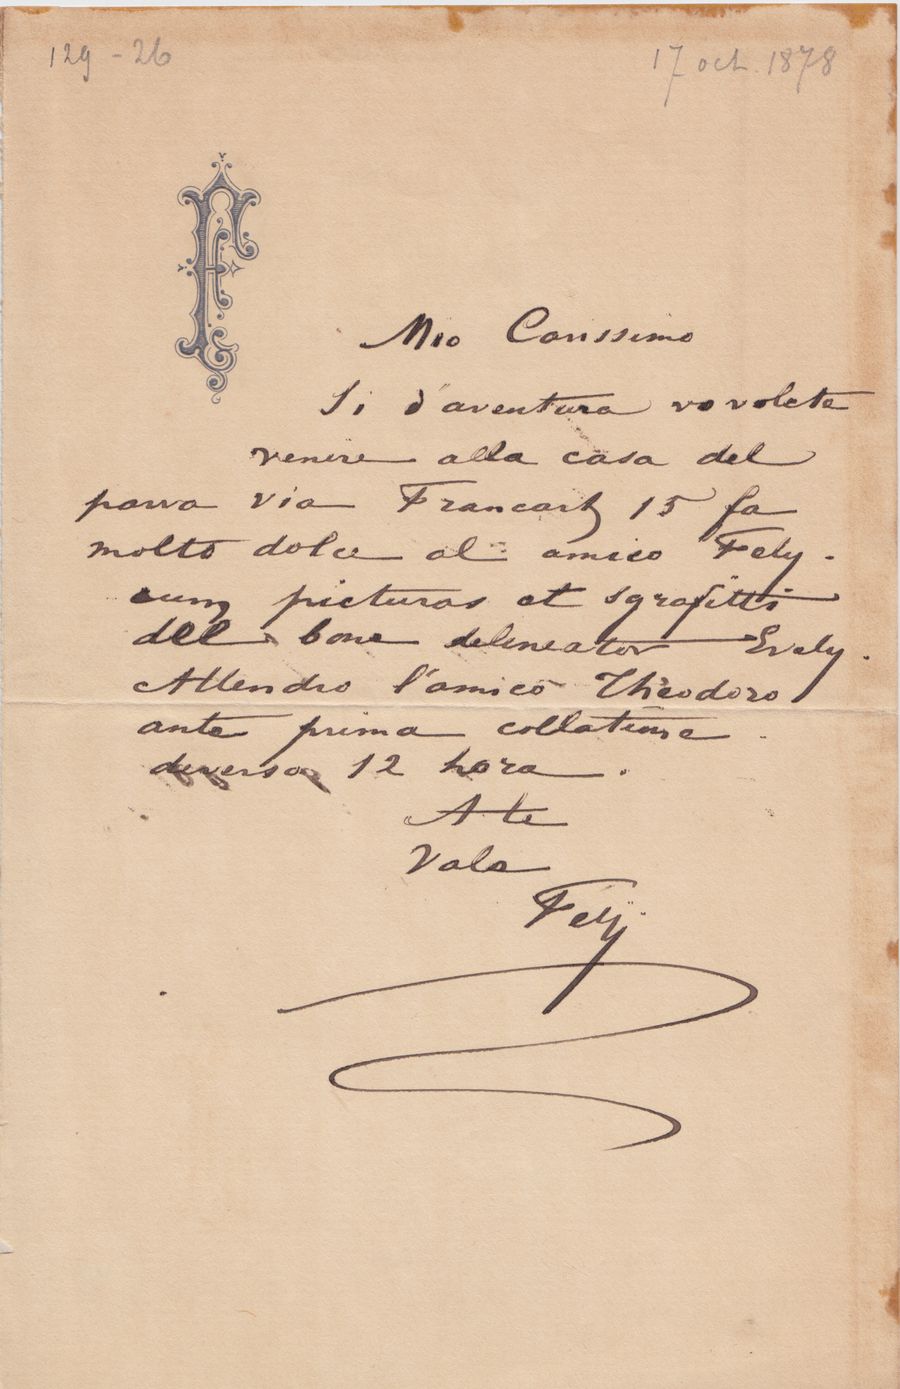 129 - 26
17 oct. 1878
F
Mio Carissimo
Si d'aventura vo volete
venire alla casa del
parva via Francart 15 fa
molto dolce al amico Fely.
cum picturas et sgrafitti
del bone delineator Evely.
Attendro l'amico Theodoro
ante prima collatione.
diverso 12 hora.
A te
Vale
Fely